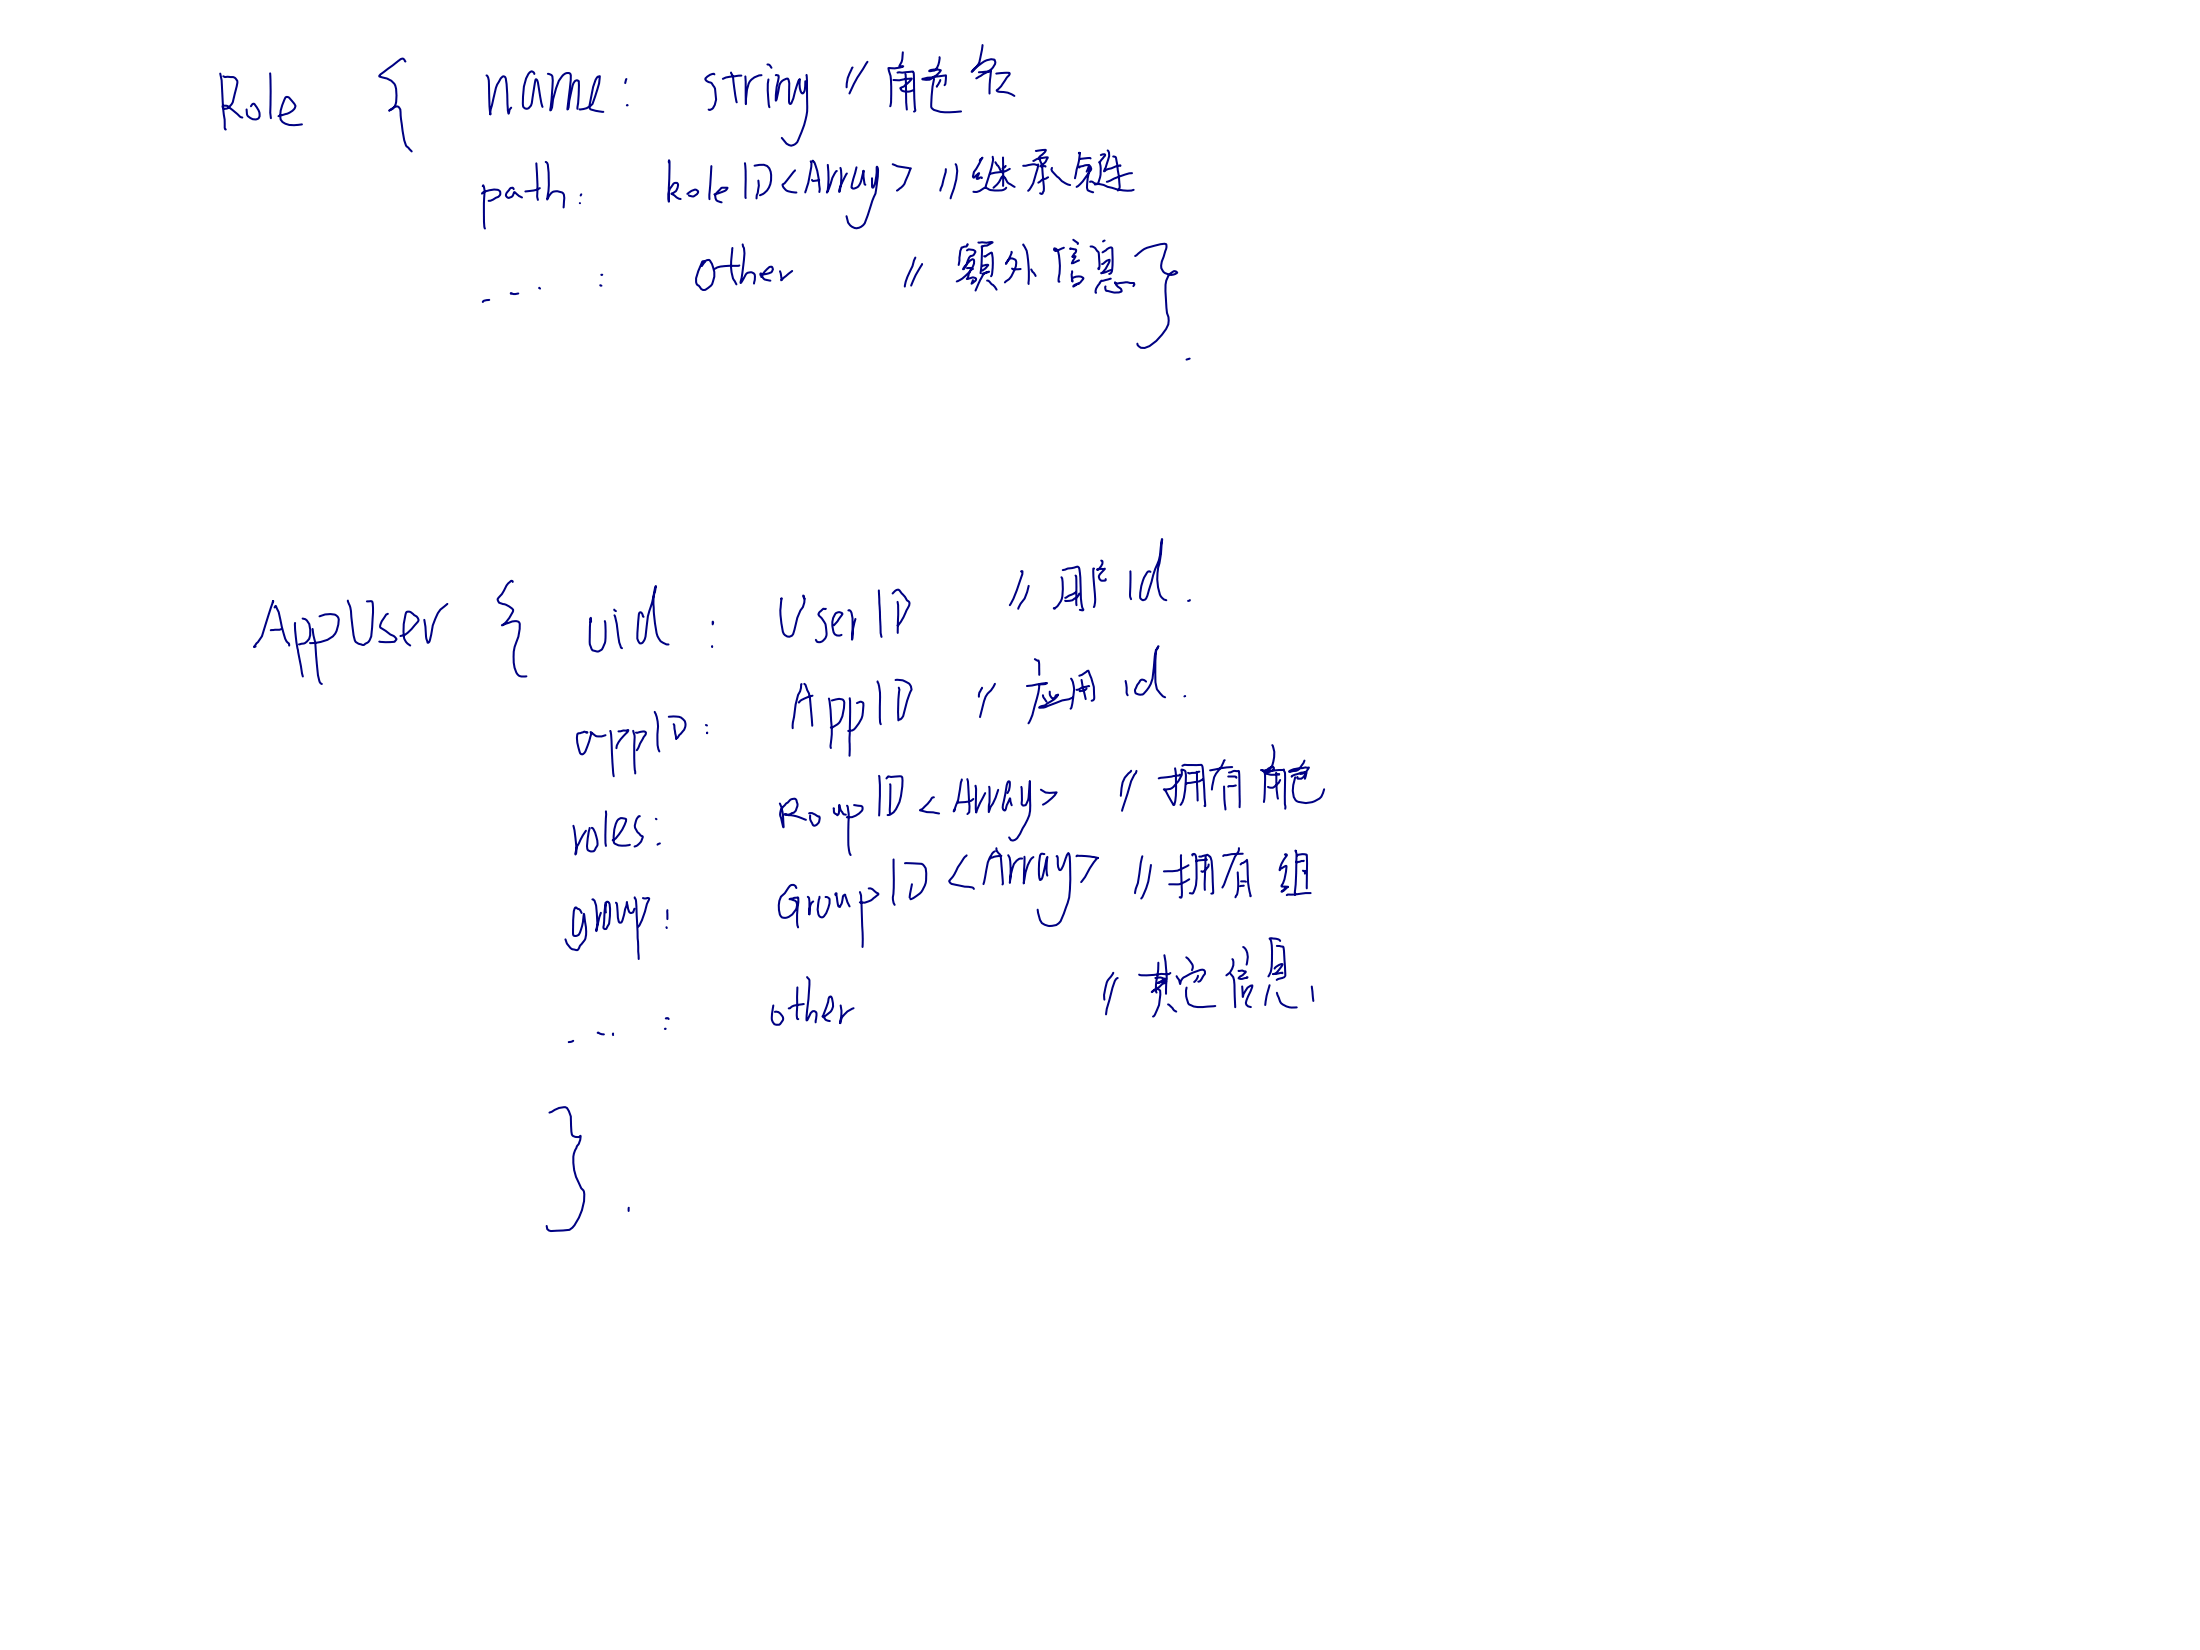 Role { name: string // 角色名
path: RoleID<Array> // 继承链
... : other // 额外信息 }.
AppUser { uid : UserID // 用户id.
appID: AppID // 应用id.
roles: RoupID<Array> // 拥有角色
group: GroupID<Array> // 拥有组
... : other // 其它信息.
}.